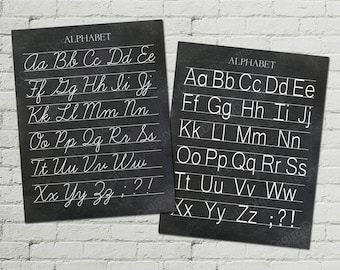 ALPHABET
Aa Bb Cc Dd Ee
Ff Gg Hh Ii Jj
Kk Ll Mm Nn
Oo Pp Qq Rr Ss
Tt Uu Vv Ww
Xx Yy Zz ; ? !
ALPHABET
Aa Bb Cc Dd Ee
Ff Gg Hh Ii Jj
Kk Ll Mm Nn
Oo Pp Qq Rr Ss
Tt Uu Vv Ww
Xx Yy Zz ; ? !